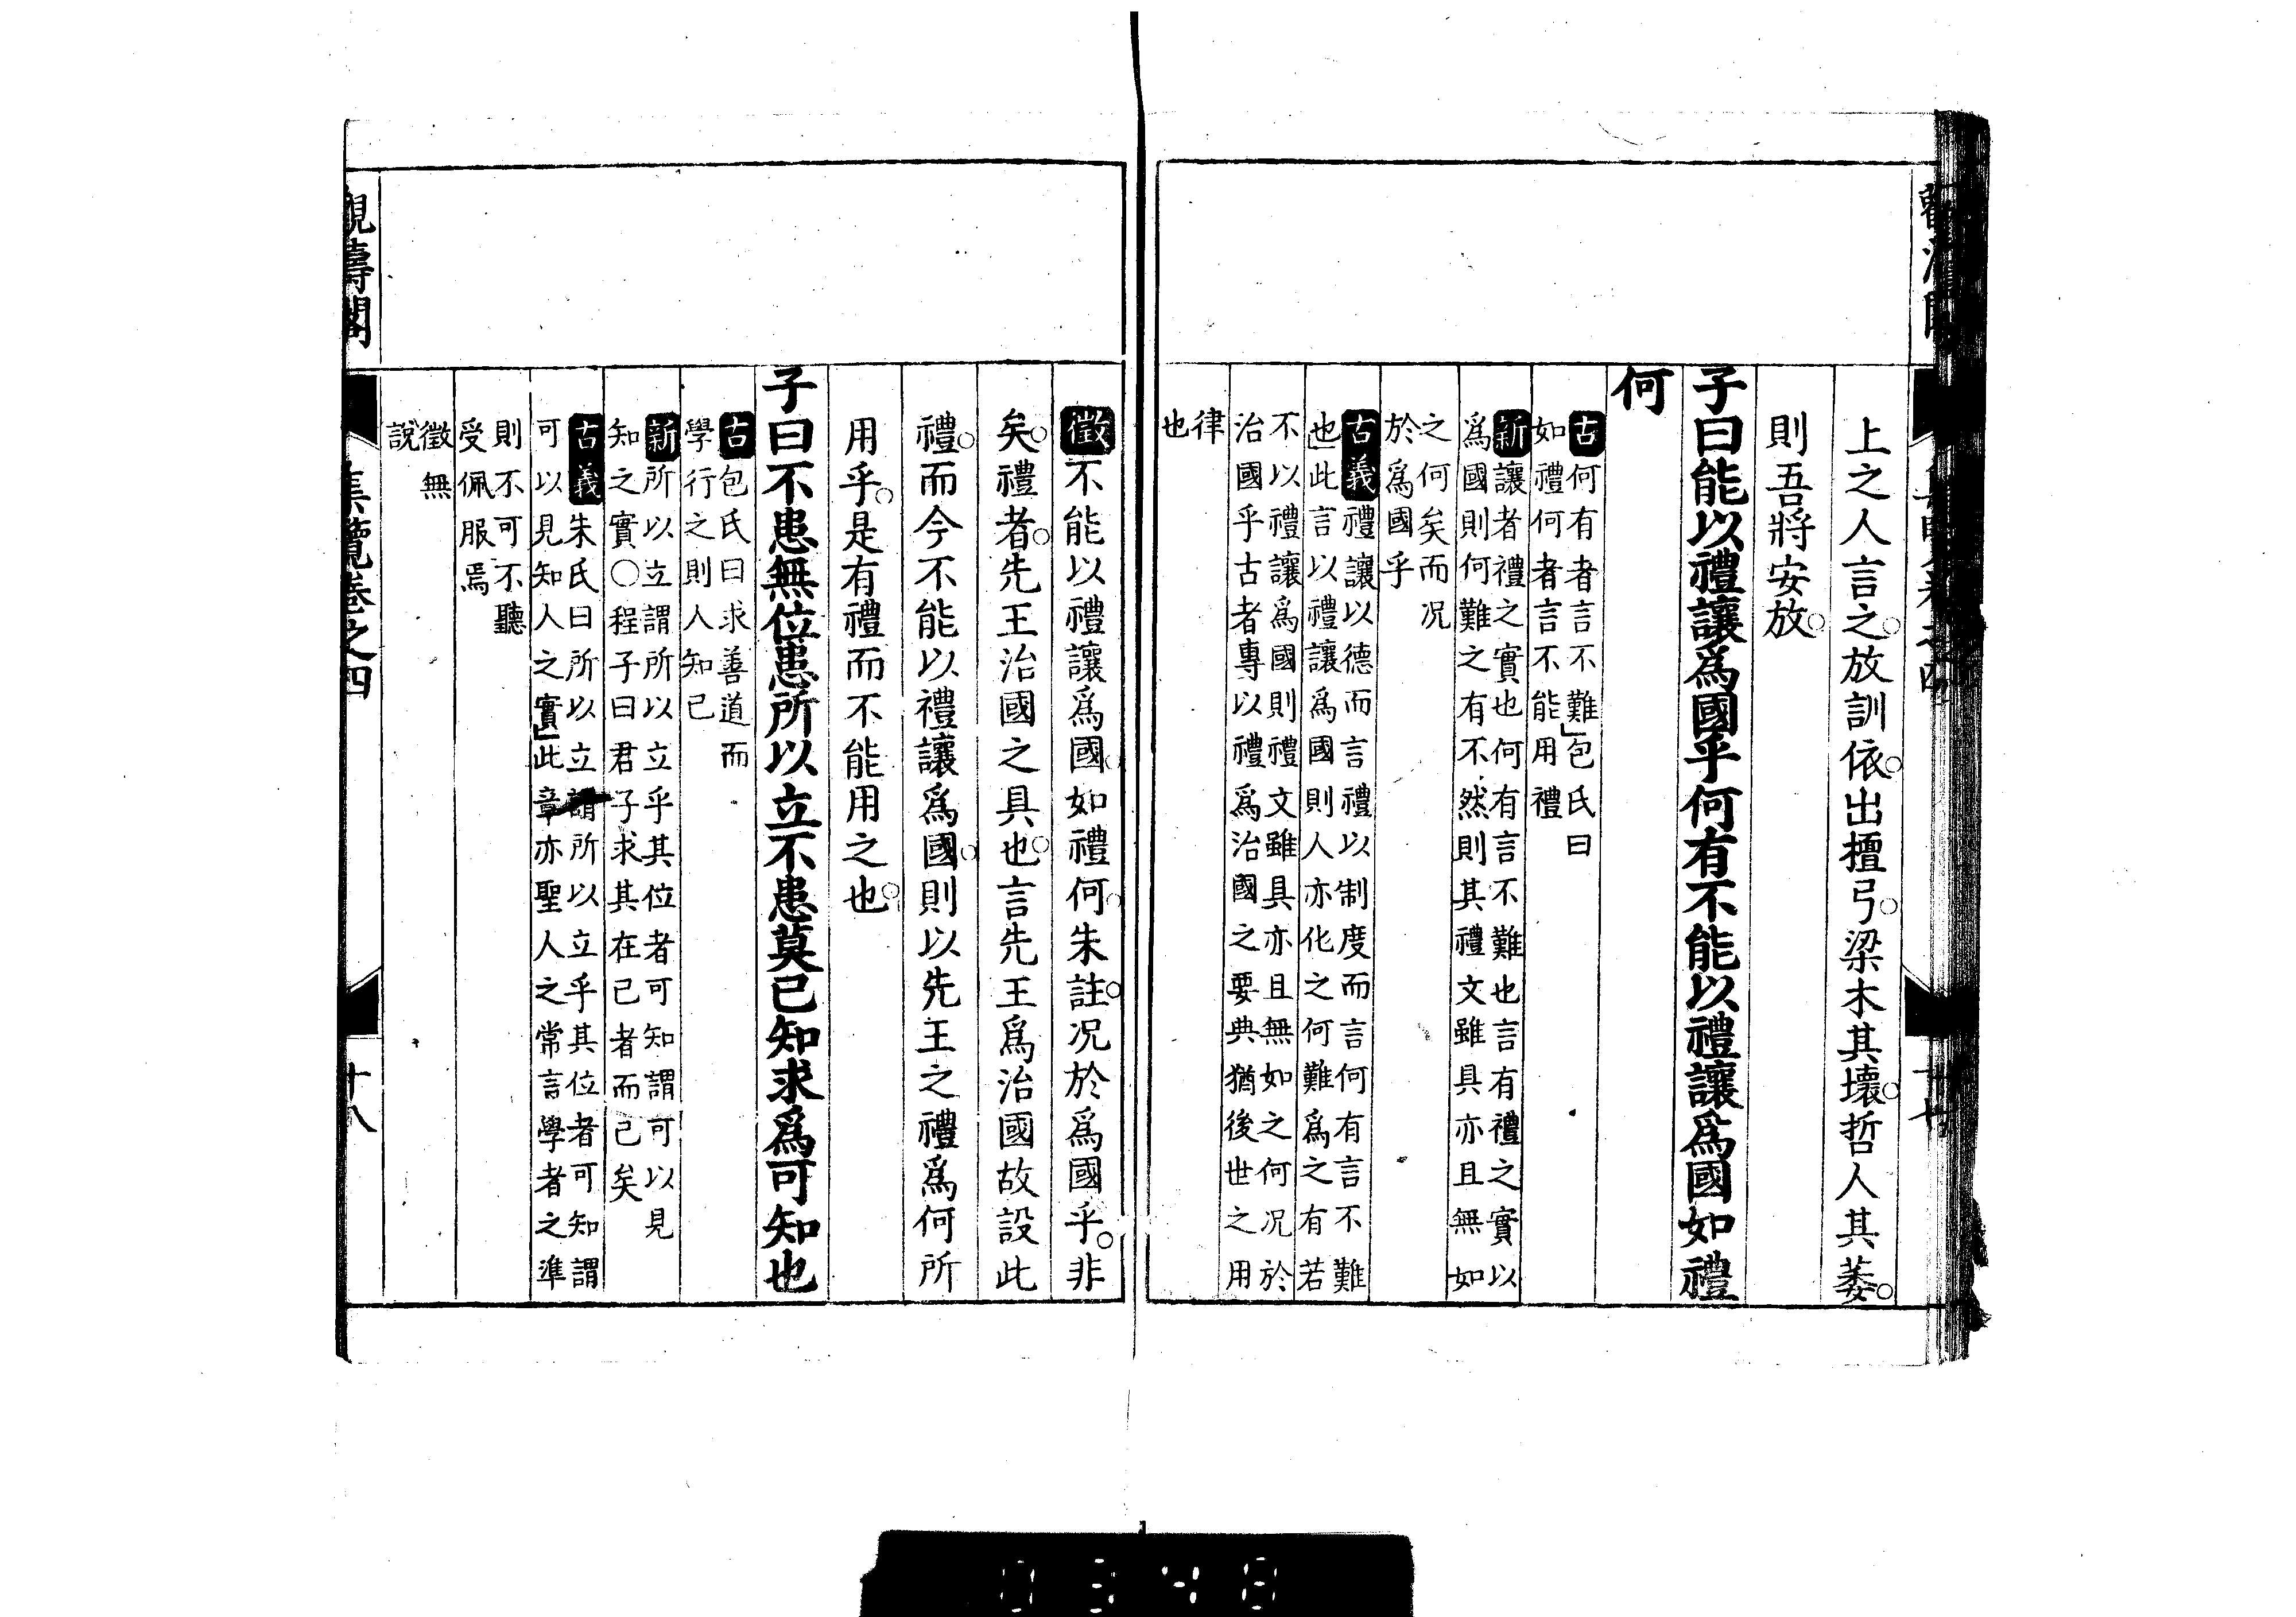 上之人言之。放訓依。出擅弓。梁木其壞。哲人其萎。
則吾將安放。
子曰能以禮讓爲國乎何有不能以禮讓爲國如禮
何
古何有者言不難」包氏曰
如禮何者言不能用禮
新讓者禮之實也何有言不難也言有禮之實以
爲國則何難之有不然則其禮文雖具亦且無如
之何矣而况
於爲國乎
古義禮讓以德而言禮以制度而言何有言不難
也」此言以禮讓爲國則人亦化之何難爲之有若
不以禮讓爲國則禮文雖具亦且無如之何况於
治國乎古者專以禮爲治國之要典猶後世之用
律
也
徵不能以禮讓爲國。如禮何。朱註。况於爲國乎。非
矣。禮者。先王治國之具也。言先王爲治國故設此
禮。而今不能以禮讓爲國。則以先王之禮爲何所
用乎。是有禮而不能用之也。
子曰不患無位患所以立不患莫己知求爲可知也
古包氏曰求善道而
學行之則人知己
新所以立謂所以立乎其位者可知謂可以見
知之實○程子曰君子求其在己者而已矣
古義朱氏曰所以立謂所以立乎其位者可知謂
可以見知人之實」此章亦聖人之常言學者之準
則不可不聽
受佩服焉
徵無
說
觀濤閣
集覽卷之四
十八